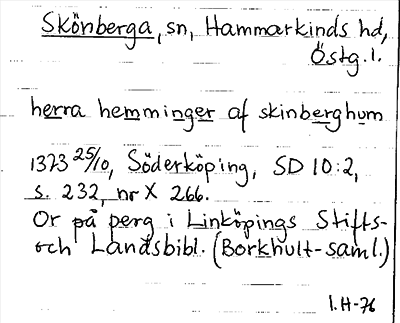 Skönberga, sn, Hammarkinds hd,
Östg. l.
herra hemminger af skinberghum
1373 25/10, Söderköping, SD 10:2,
s. 232, nr X 266.
Or på perg i Linköpings Stifts-
och Landsbibl. (Borkhult-saml.)
l. H-76